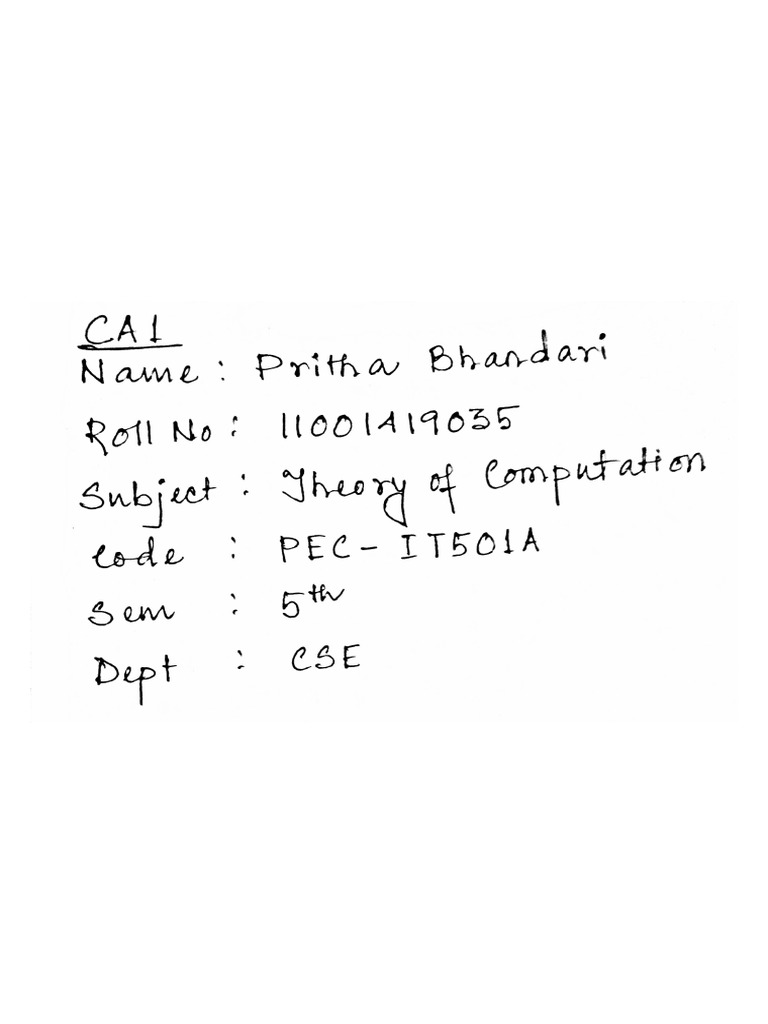 CA1
Name : Pritha Bhandari
Roll No : 11001419035
Subject : Theory of Computation
Code : PEC - IT501A
Sem : 5th
Dept : CSE